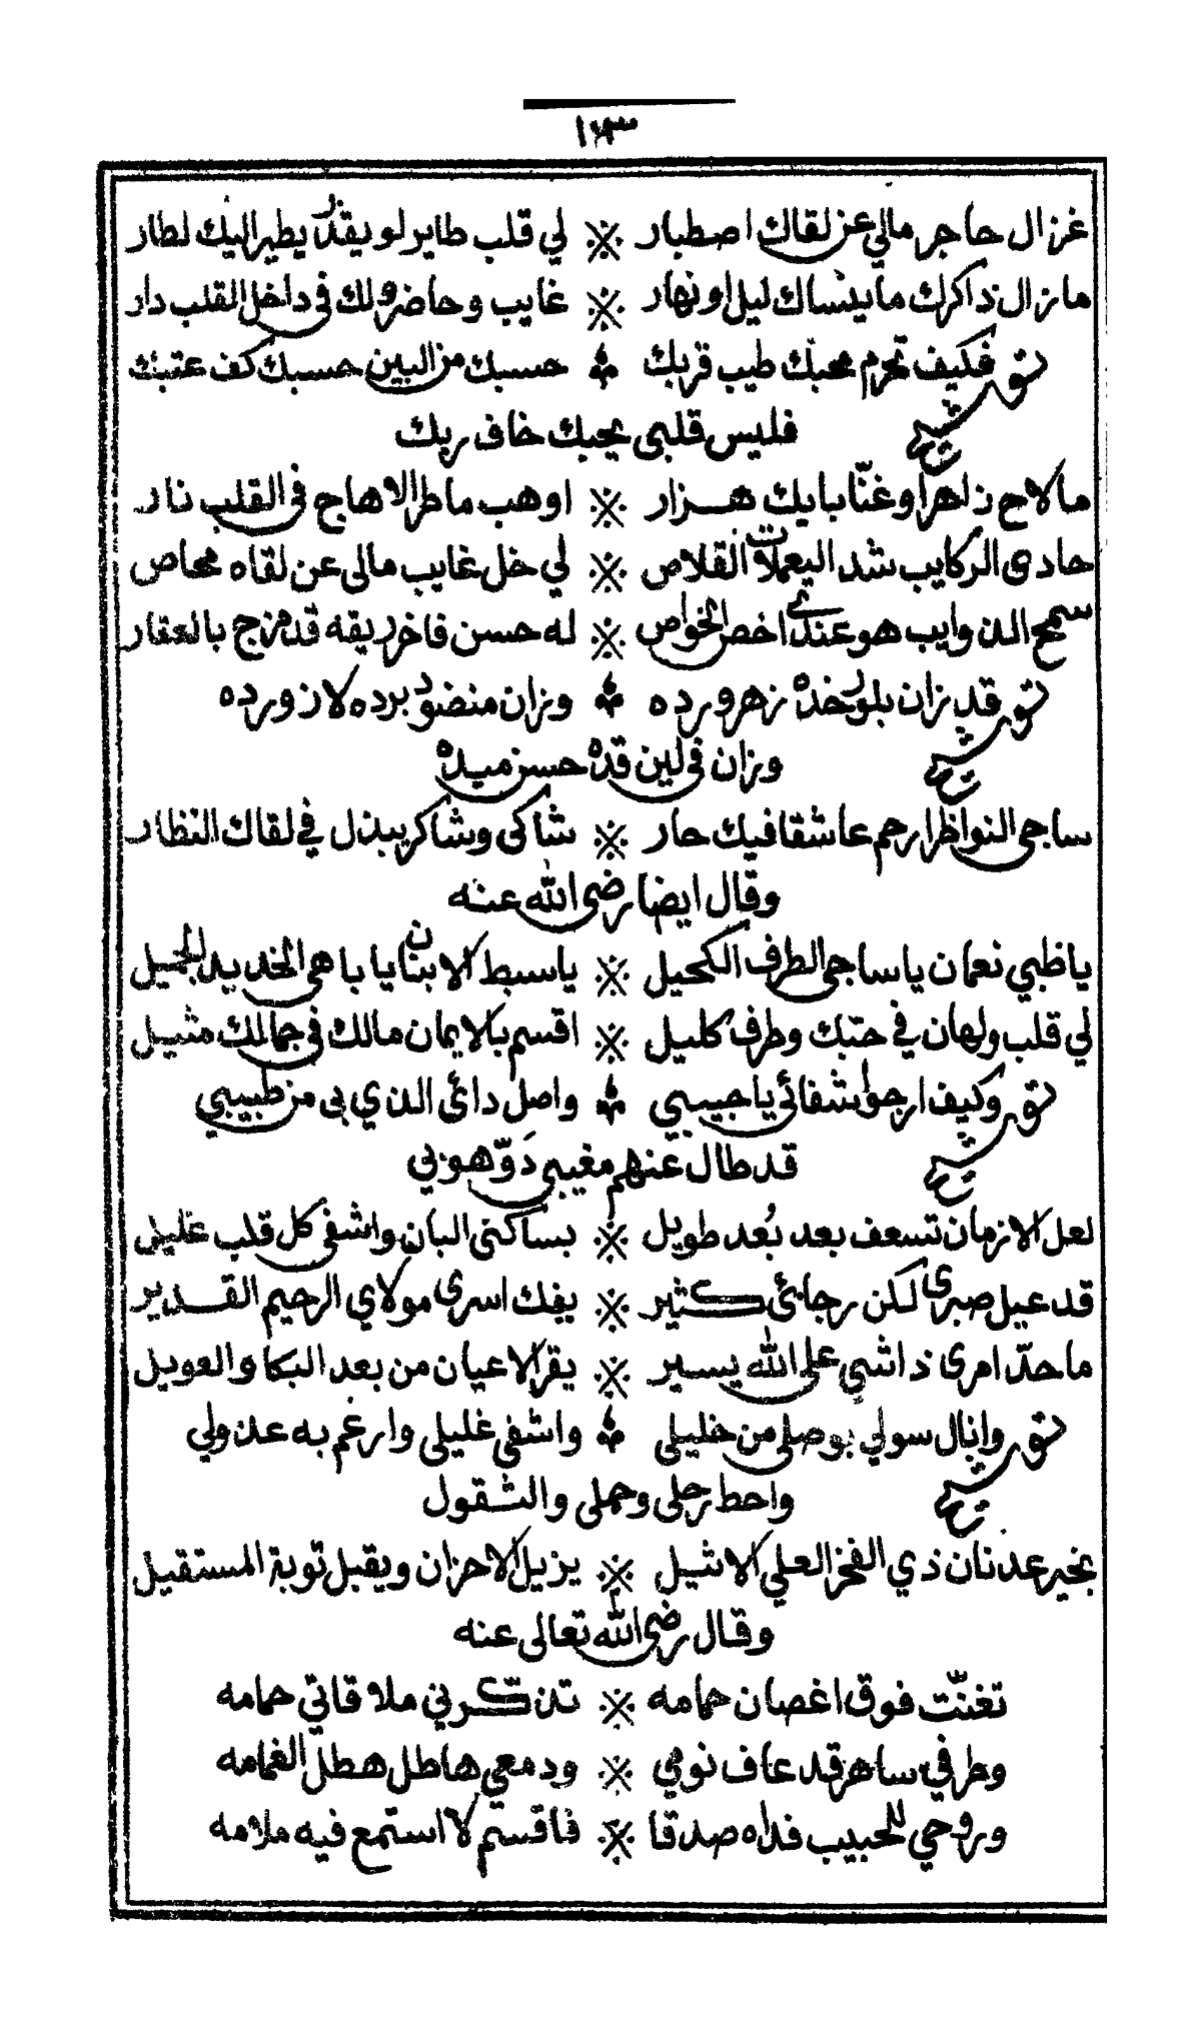 ١٣٣
غزال حاجر مالي عن لقاك اصطبار ※ لي قلب طاير لو يقدر يطير اليك لطار
ما زال ذاكرك ما ينساك ليل او نهار ※ غايب وحاضر ولك في داخل القلب دار
توشيح فكيف تحرم محبك طيب قربك حسبك من البين حسبك كف عتبك
فليس قلبي يحبك خاف ربك
ما لاح زاهر او غنّا بايك هزار ※ او هب ماطر الا هاج في القلب نار
حادى الركايب شد اليعملات القلاص ※ لي خل غايب مالى عن لقاه محاص
سمح الذوايب هو عندي اخص الخواص ※ له حسن فاخر ريقه قد مزج بالعقار
توشيح قد زان بلور خده زهر ورده وزان منضود برده لاز ورده
وزان في لين قده حسن ميده
ساجى النواظر ارحم عاشقا فيك حار ※ شاكى وشاكر يبذل في لقاك النظار
وقال ايضا رضى الله عنه
يا ظبي نعمان يا ساجى الطرف الكحيل ※ يا سبط الابنان يا باهى الخديد الجميل
لي قلب ولهان في حبّك وطرف كليل ※ اقسم بالايمان مالك في جمالك مثيل
توشيح وكيف ارجو شفائي يا حبيبي واصل دائى الذي بى من طبيبي
قد طال عنهم مغيبى دَوّهوبي
لعل الازمان تسعف بعد بُعد طويل ※ بساكنى البان واشفى كل قلب غليل
قد عيل صبرى لكن رجائى كثير ※ يفك اسرى مولاي الرحيم القدير
ما حدّ امرى ذا شي على الله يسير ※ يقر الاعيان من بعد البكا والعويل
توشيح وانال سولي بوصلى من خليلى واشفى غليلى وارغم به عذولي
واحط رحلى وحملى والثقول
بخير عدنان ذي الفخر العلي الاثيل ※ يزيل الاحزان ويقبل توبة المستقيل
وقال رضى الله تعالى عنه
تغنّت فوق اغصان حمامه ※ تذكّرني ملاقاتي حمامه
وطرفي ساهر قد عاف نومي ※ ودمعي هاطل هطل الغمامه
وروحي للحبيب فداه صدقا ※ فاقسم لا استمع فيه ملامه